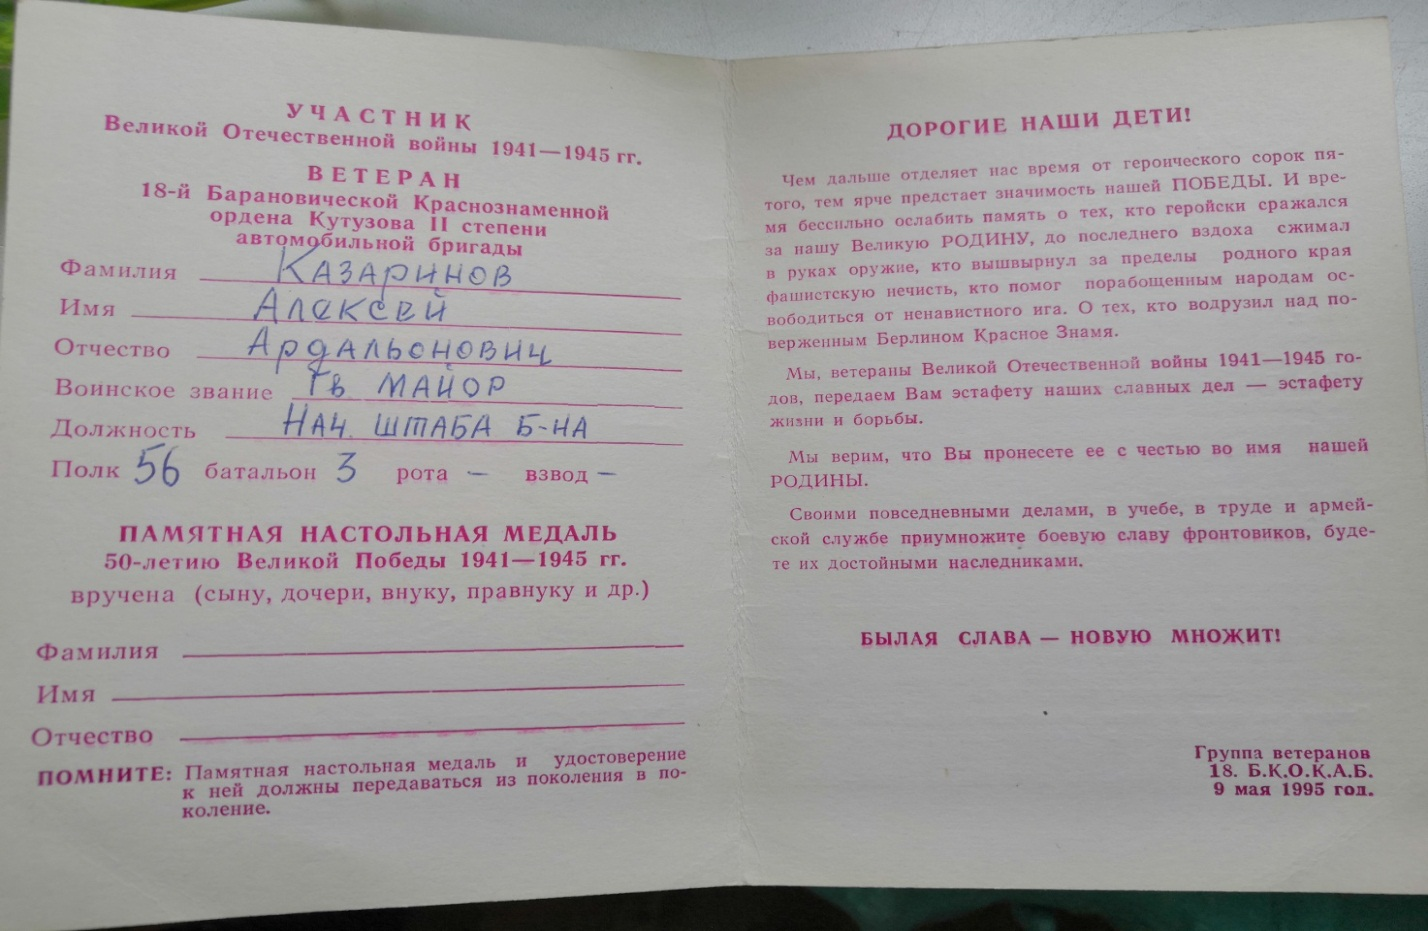 УЧАСТНИК
Великой Отечественной войны 1941—1945 гг.
ВЕТЕРАН
18-й Барановической Краснознаменной
ордена Кутузова II степени
автомобильной бригады
Фамилия Казаринов
Имя Алексей
Отчество Ардальонович
Воинское звание Гв майор
Должность Нач. штаба б-на
Полк 56 батальон 3 рота — взвод —
ПАМЯТНАЯ НАСТОЛЬНАЯ МЕДАЛЬ
50-летию Великой Победы 1941—1945 гг.
вручена (сыну, дочери, внуку, правнуку и др.)
Фамилия
Имя
Отчество
ПОМНИТЕ: Памятная настольная медаль и удостоверение
к ней должны передаваться из поколения в по-
коление.
ДОРОГИЕ НАШИ ДЕТИ!
Чем дальше отделяет нас время от героического сорок пя-
того, тем ярче предстает значимость нашей ПОБЕДЫ. И вре-
мя бессильно ослабить память о тех, кто геройски сражался
за нашу Великую РОДИНУ, до последнего вздоха сжимал
в руках оружие, кто вышвырнул за пределы родного края
фашистскую нечисть, кто помог порабощенным народам ос-
вободиться от ненавистного ига. О тех, кто водрузил над по-
верженным Берлином Красное Знамя.
Мы, ветераны Великой Отечественной войны 1941—1945 го-
дов, передаем Вам эстафету наших славных дел — эстафету
жизни и борьбы.
Мы верим, что Вы пронесете ее с честью во имя нашей
РОДИНЫ.
Своими повседневными делами, в учебе, в труде и армей-
ской службе приумножите боевую славу фронтовиков, буде-
те их достойными наследниками.
БЫЛАЯ СЛАВА — НОВУЮ МНОЖИТ!
Группа ветеранов
18. Б.К.О.К.А.Б.
9 мая 1995 год.